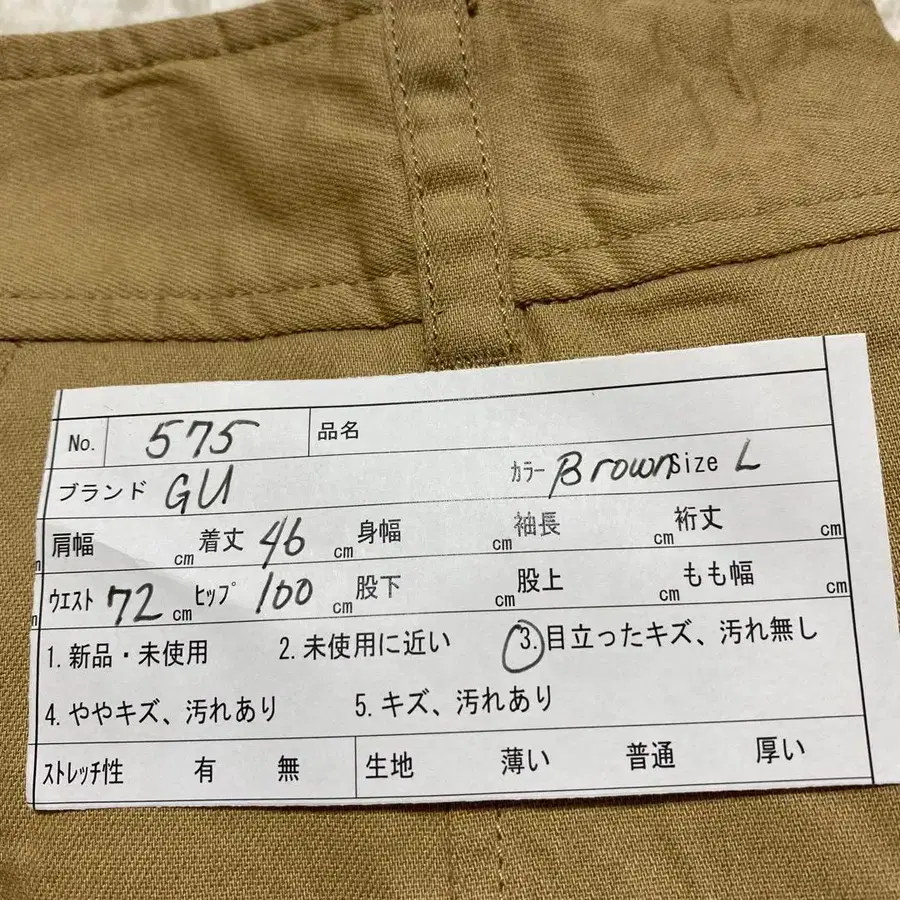 No. 575 品名
ブランド GU カラー Brown size L
肩幅 cm 着丈 46 cm 身幅 cm 袖長 cm 裄丈 cm
ウエスト 72 cm ヒップ 100 cm 股下 cm 股上 cm もも幅 cm
1. 新品・未使用 2. 未使用に近い 3. 目立ったキズ、汚れ無し
4. ややキズ、汚れあり 5. キズ、汚れあり
ストレッチ性 有 無 生地 薄い 普通 厚い